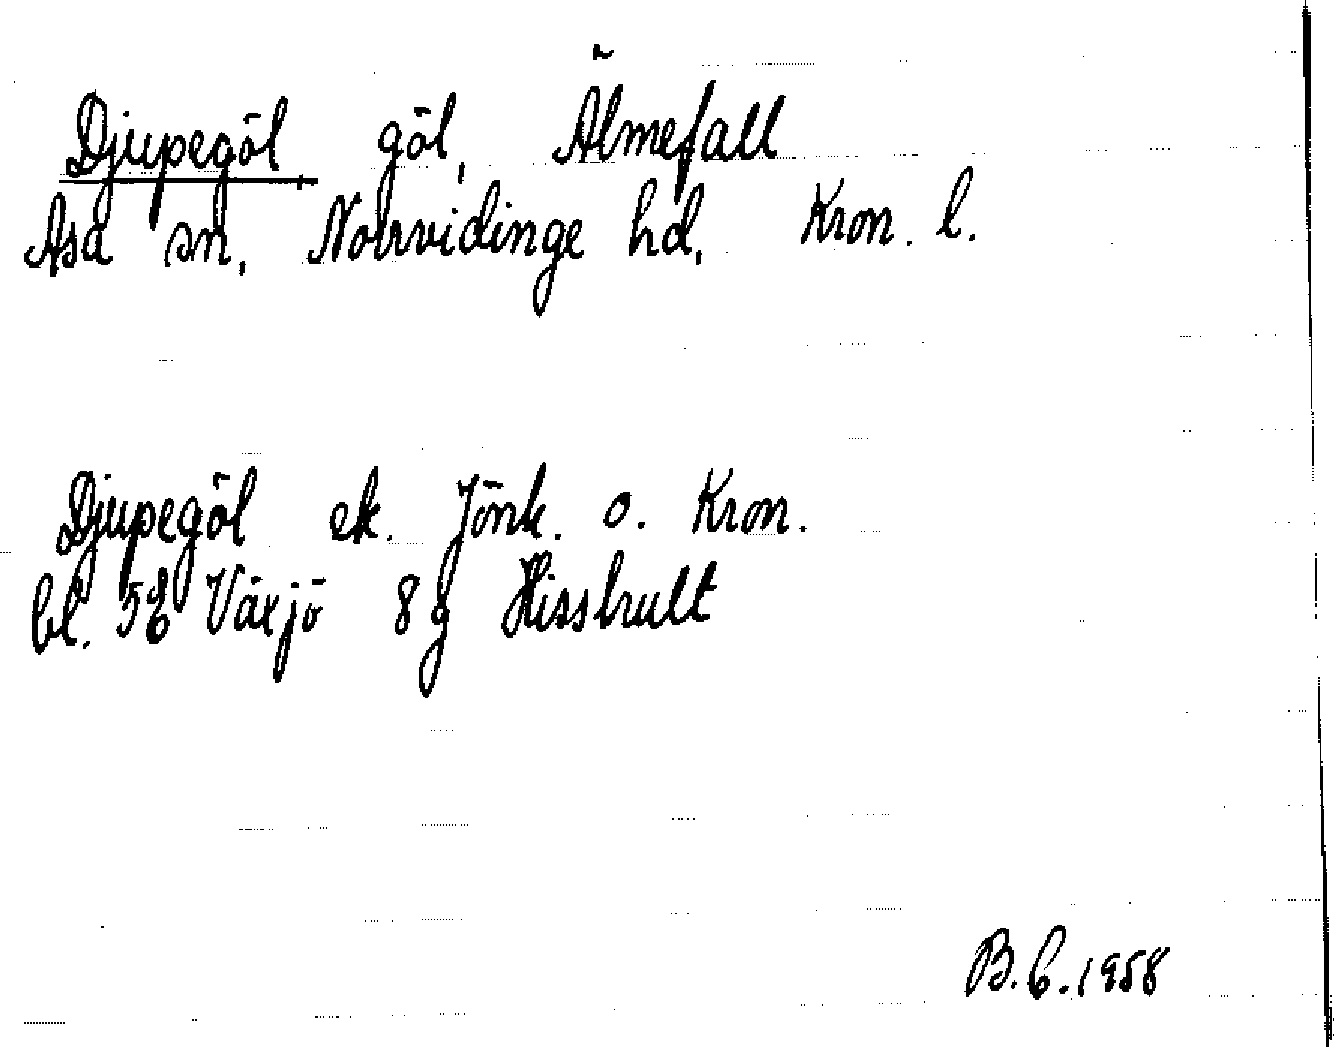 Djupegöl göl, Älmefall
Asa sn, Norrvidinge hd, Kron. l.
Djupegöl ek. Jönk. o. Kron.
bl. 5E Växjö 8g Hisshult
B.C. 1958